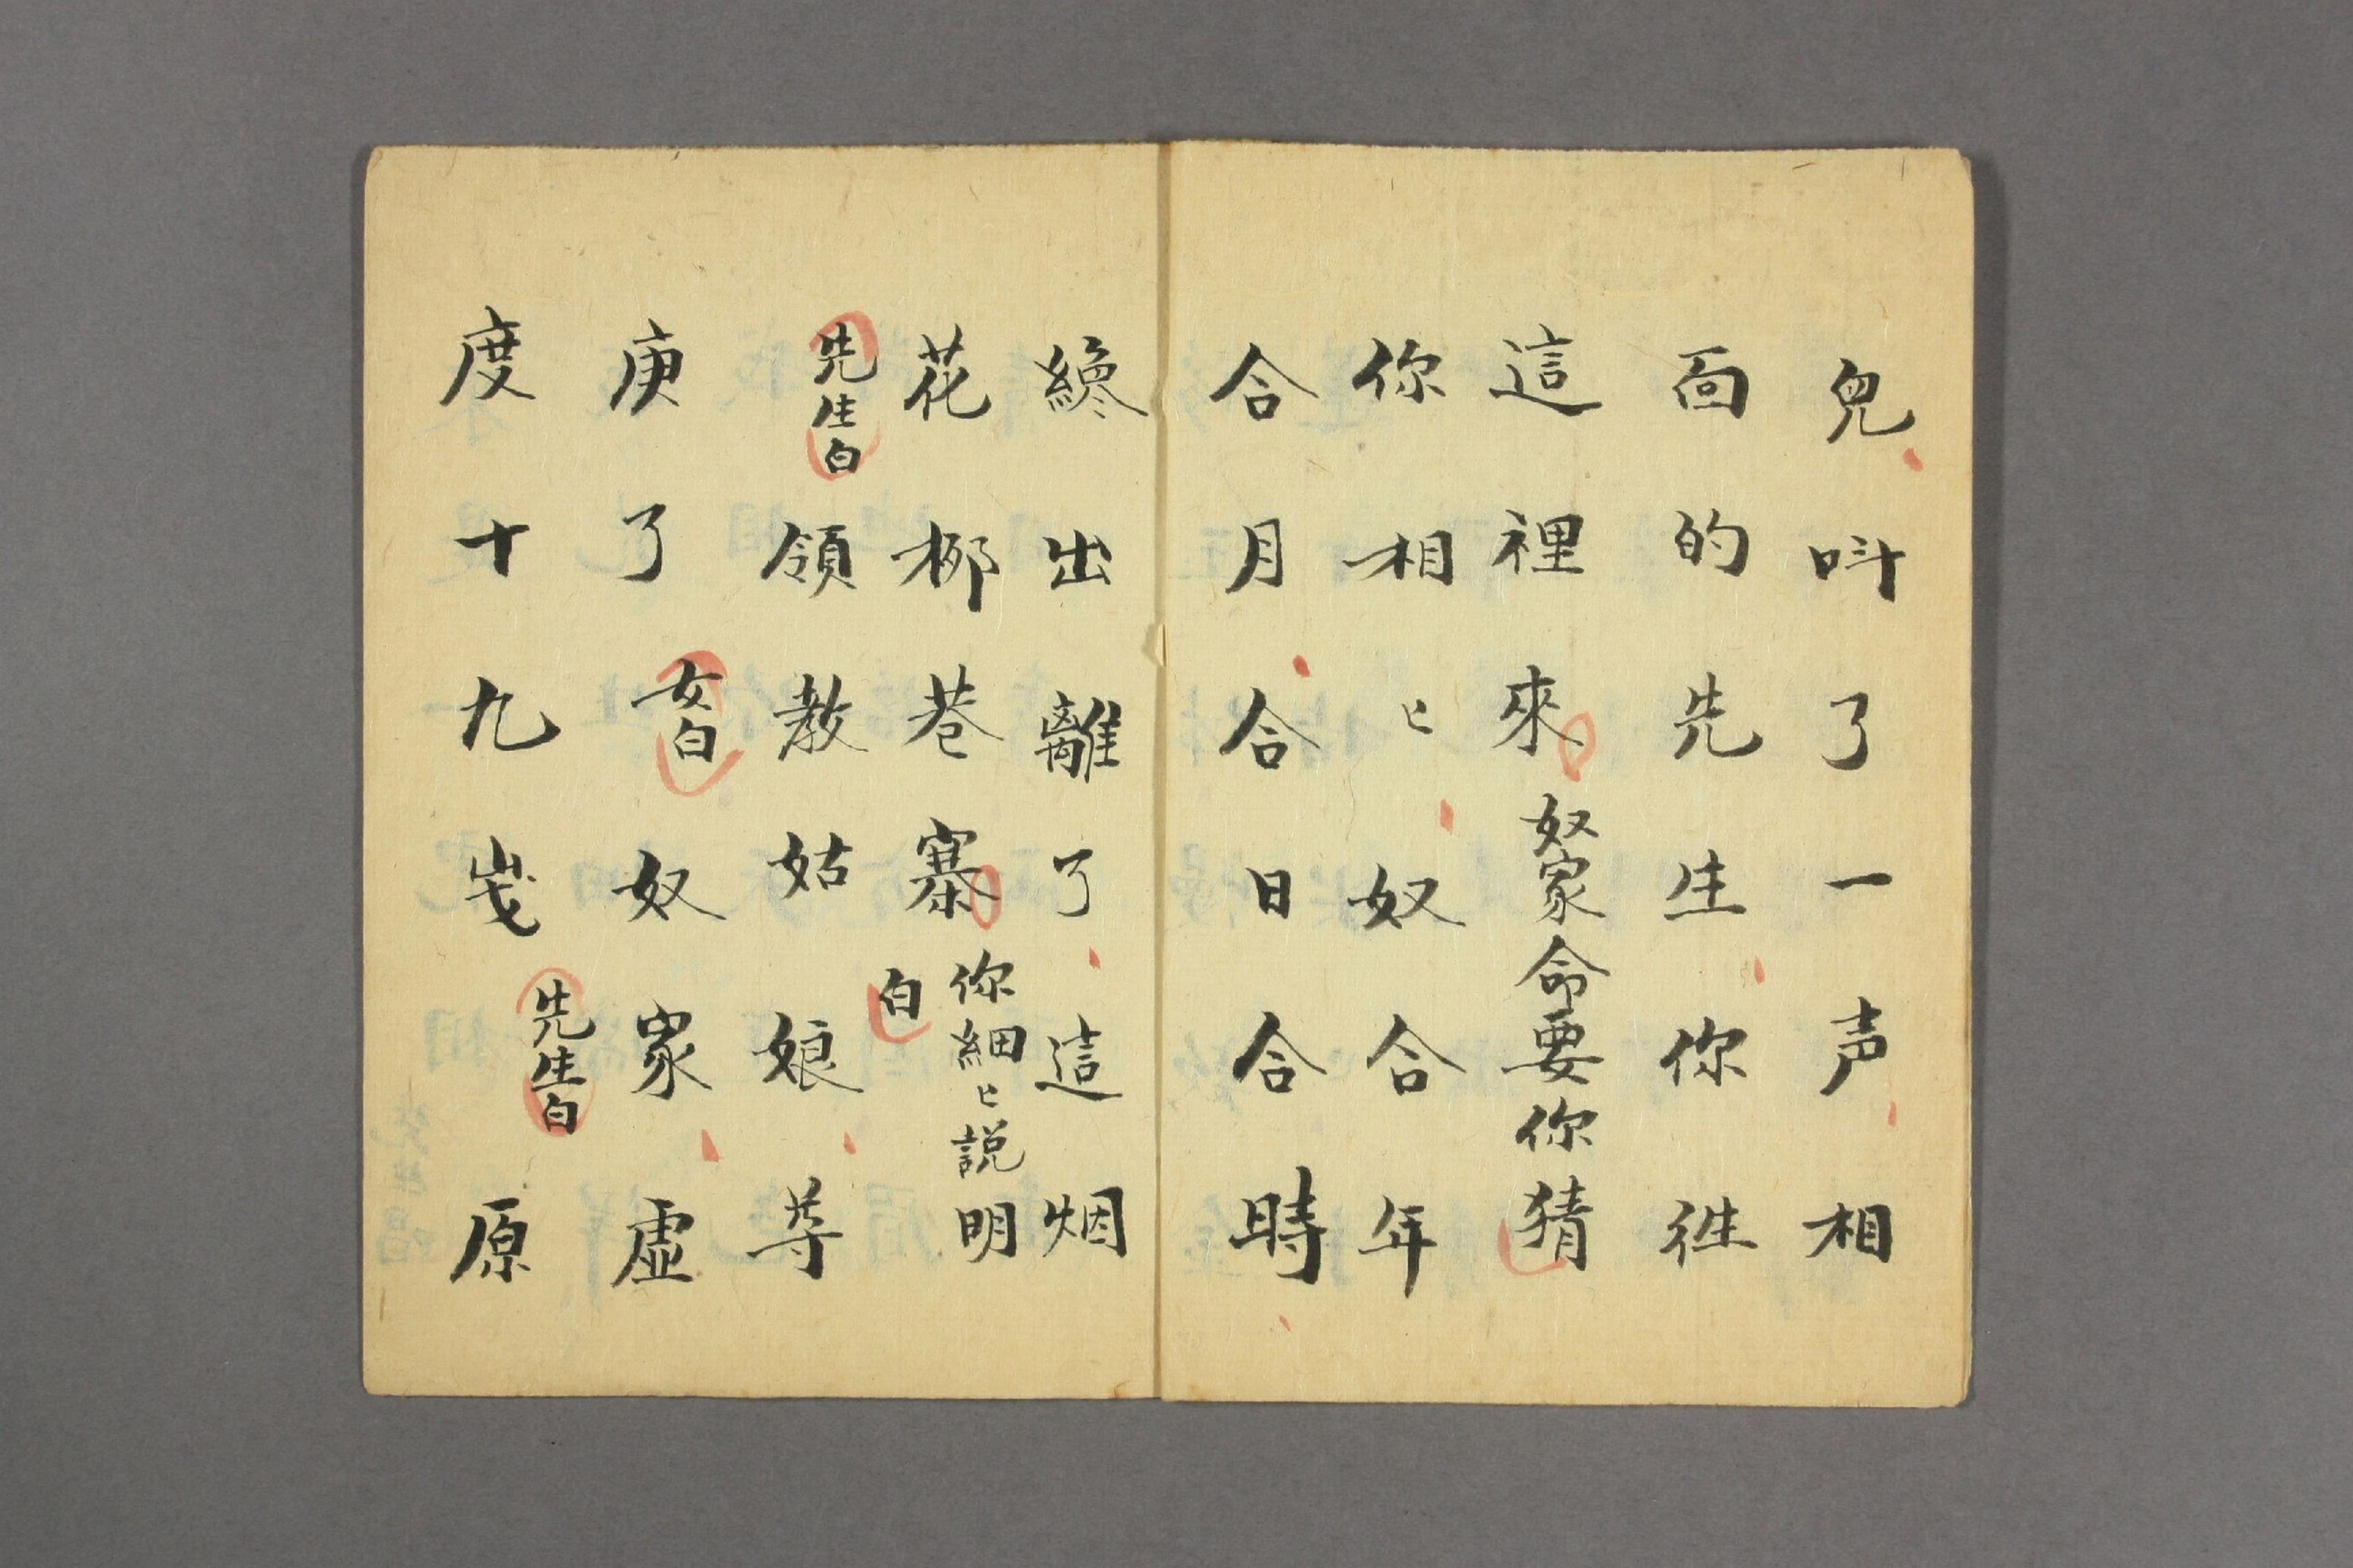 兒呌了一声相
面的先生你徃
這裡來奴家命要你猜
你相〻奴合年
合月合日合時
纔出離了這烟
花柳巷寨你細〻説明白
先生白領教姑娘等
庚了女白奴家虚
度十九歲先生白原